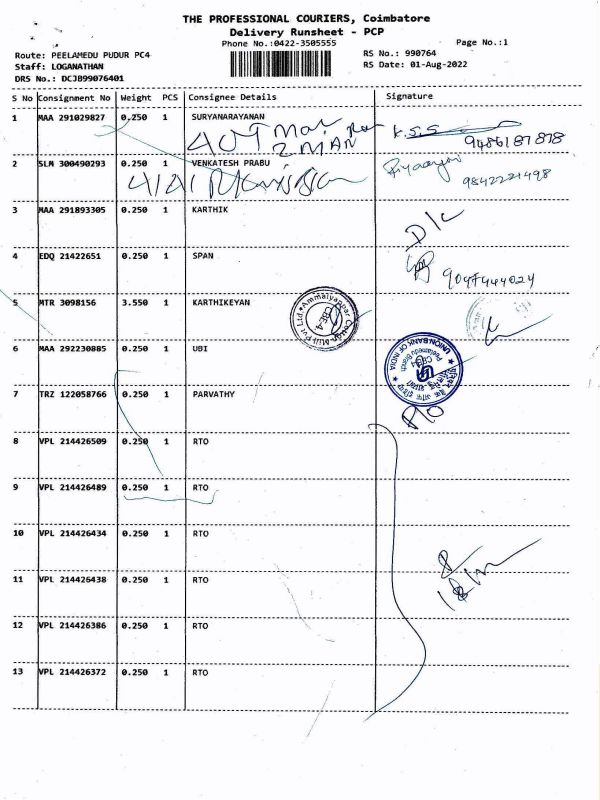 THE PROFESSIONAL COURIERS, Coimbatore
Delivery Runsheet - PCP
Phone No.:0422-3505555 Page No.:1
Route: PEELAMEDU PUDUR PC4 RS No.: 990764
Staff: LOGANATHAN RS Date: 01-Aug-2022
DRS No.: DCJB99076401
S No Consignment No Weight PCS Consignee Details Signature
1 MAA 291029827 0.250 1 SURYANARAYANAN
K.S.S 9486187878
2 SLM 300490293 0.250 1 VENKATESH PRABU
9842221498
3 MAA 291893305 0.250 1 KARTHIK
D/L
4 EDQ 21422651 0.250 1 SPAN
9047444024
5 MTR 3098156 3.550 1 KARTHIKEYAN
6 MAA 292230885 0.250 1 UBI
UNION BANK OF INDIA
Peelamedu Branch
7 TRZ 122058766 0.250 1 PARVATHY
8 VPL 214426509 0.250 1 RTO
9 VPL 214426489 0.250 1 RTO
10 VPL 214426434 0.250 1 RTO
11 VPL 214426438 0.250 1 RTO
12 VPL 214426386 0.250 1 RTO
13 VPL 214426372 0.250 1 RTO